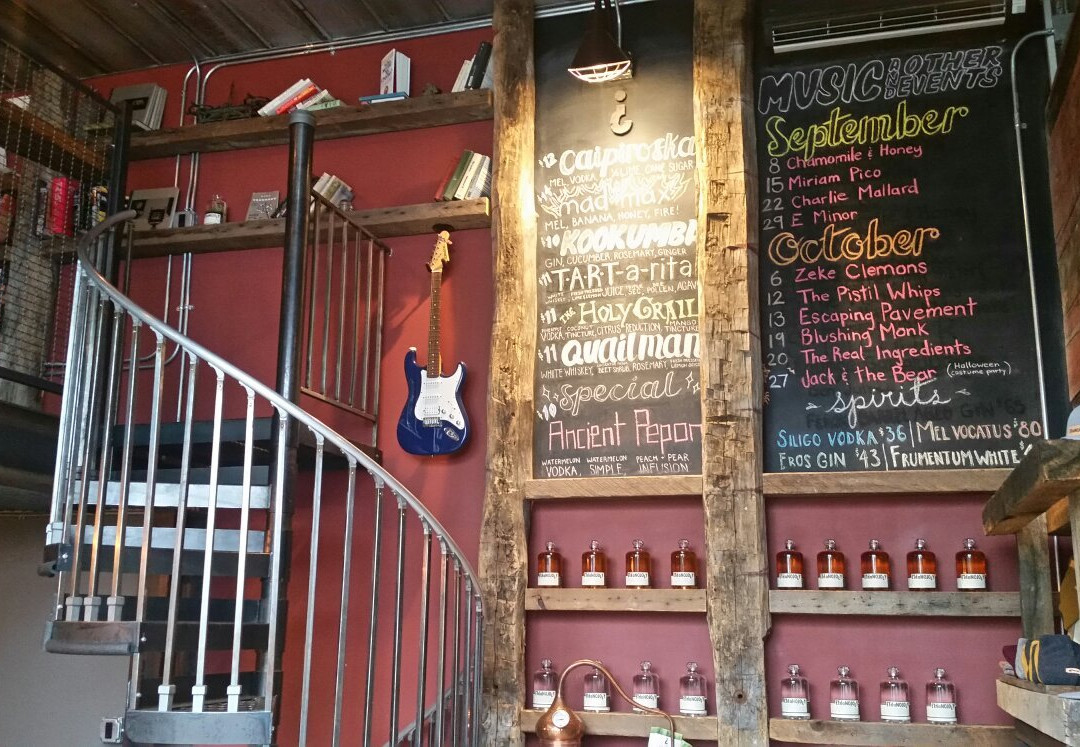 ¿
$12 Caipiroska
MEL VODKA, LIME, CANE SUGAR
mad max
MEL, BANANA, HONEY, FIRE!
$10 KOOKUMBA
GIN, CUCUMBER, ROSEMARY, GINGER
$11 T·A·R·T-a-rita
WHITE WHISKEY, JUICE, SEC, POLLEN, AGAV
$11 THE HOLY GRAIL
VODKA, COCONUT TINCTURE, CITRUS REDUCTION, MANGO TINCTURE
$11 Quailman
WHITE WHISKEY, BEET SHRUB, ROSEMARY
Special
$10
Ancient Pepor
WATERMELON WATERMELON PEACH - PEAR
VODKA, SIMPLE, INFUSION
MUSIC AND OTHER EVENTS
September
8 Chamomile & Honey
15 Miriam Pico
22 Charlie Mallard
29 E Minor
October
6 Zeke Clemons
12 The Pistil Whips
13 Escaping Pavement
19 Blushing Monk
20 The Real Ingredients
27 Jack & the Bear (Halloween costume party)
~ spirits ~
SILIGO VODKA $36 | MEL VOCATUS $80
EROS GIN $43 | FRUMENTUM WHITE $